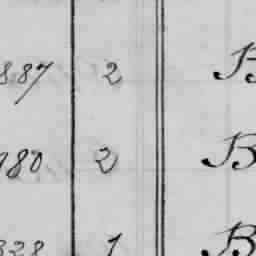 887 2 B
980 2 B
328 1 B